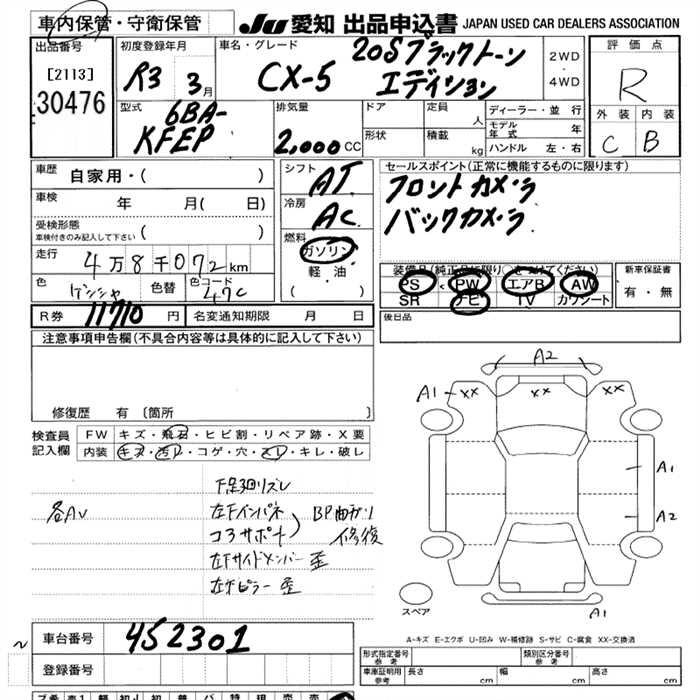 車内保管・守衛保管
JU 愛知 出品申込書 JAPAN USED CAR DEALERS ASSOCIATION
出品番号
[2113]
30476
初度登録年月
R3 3月
車名・グレード
CX-5
20Sブラックトーン
エディション
2WD
・
4WD
評価点
R
外装 内装
C B
型式
6BA-
KFEP
排気量
2,000CC
ドア
形状
定員 人
積載 kg
ディーラー・並行
モデル年式 年
ハンドル 左・右
車歴
自家用・( )
車検
年 月( 日)
受検形態
車検付きのみ記入して下さい ( )
走行
4万8千072km
色
色替
色コード
47C
シフト
AT
冷房
AC
燃料
ガソリン
軽・油
( )
セールスポイント(正常に機能するものに限ります)
フロントカメラ
バックカメラ
装備品(純正品に限り○をつけてください)
PS PW エアB AW
SR ナビ TV カワシート
新車保証書
有・無
後日品
R券 11710 円 名変通知期限 月 日
注意事項申告欄(不具合内容等は具体的に記入して下さい)
修復歴 有 〔箇所
検査員
記入欄
FW キズ・飛石・ヒビ割・リペア跡・X要
内装 キズ・汚レ・コゲ・穴・スレ・キレ・破レ
下廻リズレ
各AU
左Fインパネ
コアサポート
BP曲ガリ
修復
左Fサイドメンバー 歪
左Fピラー 歪
A2
A1 XX XX XX
A1
A2
A1
スペア
A-キズ E-エクボ U-凹み W-補修跡 S-サビ C-腐食 XX-交換済
車台番号 452301
登録番号
形式指定番号
参考
類別区分番号
参考
車庫証明用
参考
長さ cm 幅 cm 高さ cm